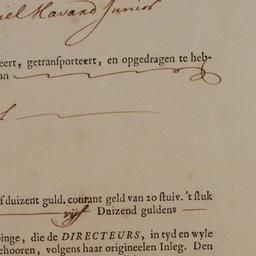 iel Havard Junior
eert, getransporteert, en opgedragen te heb-
an
f duizent guld. courant geld van 20 stuiv. 't stuk
vijf Duizend guldens
inge, die de DIRECTEURS, in tyd en wyle
ehooren, volgens haar origineelen Inleg. Den